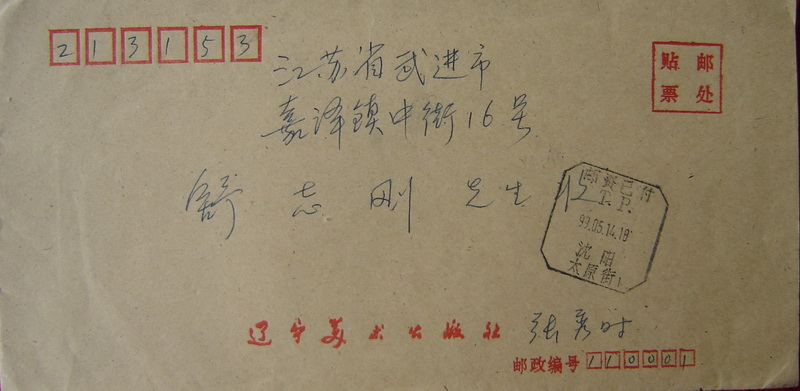 213153
江苏省武进市
嘉泽镇中街16号
贴邮
票处
舒志刚 先生 收
邮资已付
T.P.
99.05.14.18
沈阳
太原街1
辽宁美术出版社 张秀时
邮政编号 110001